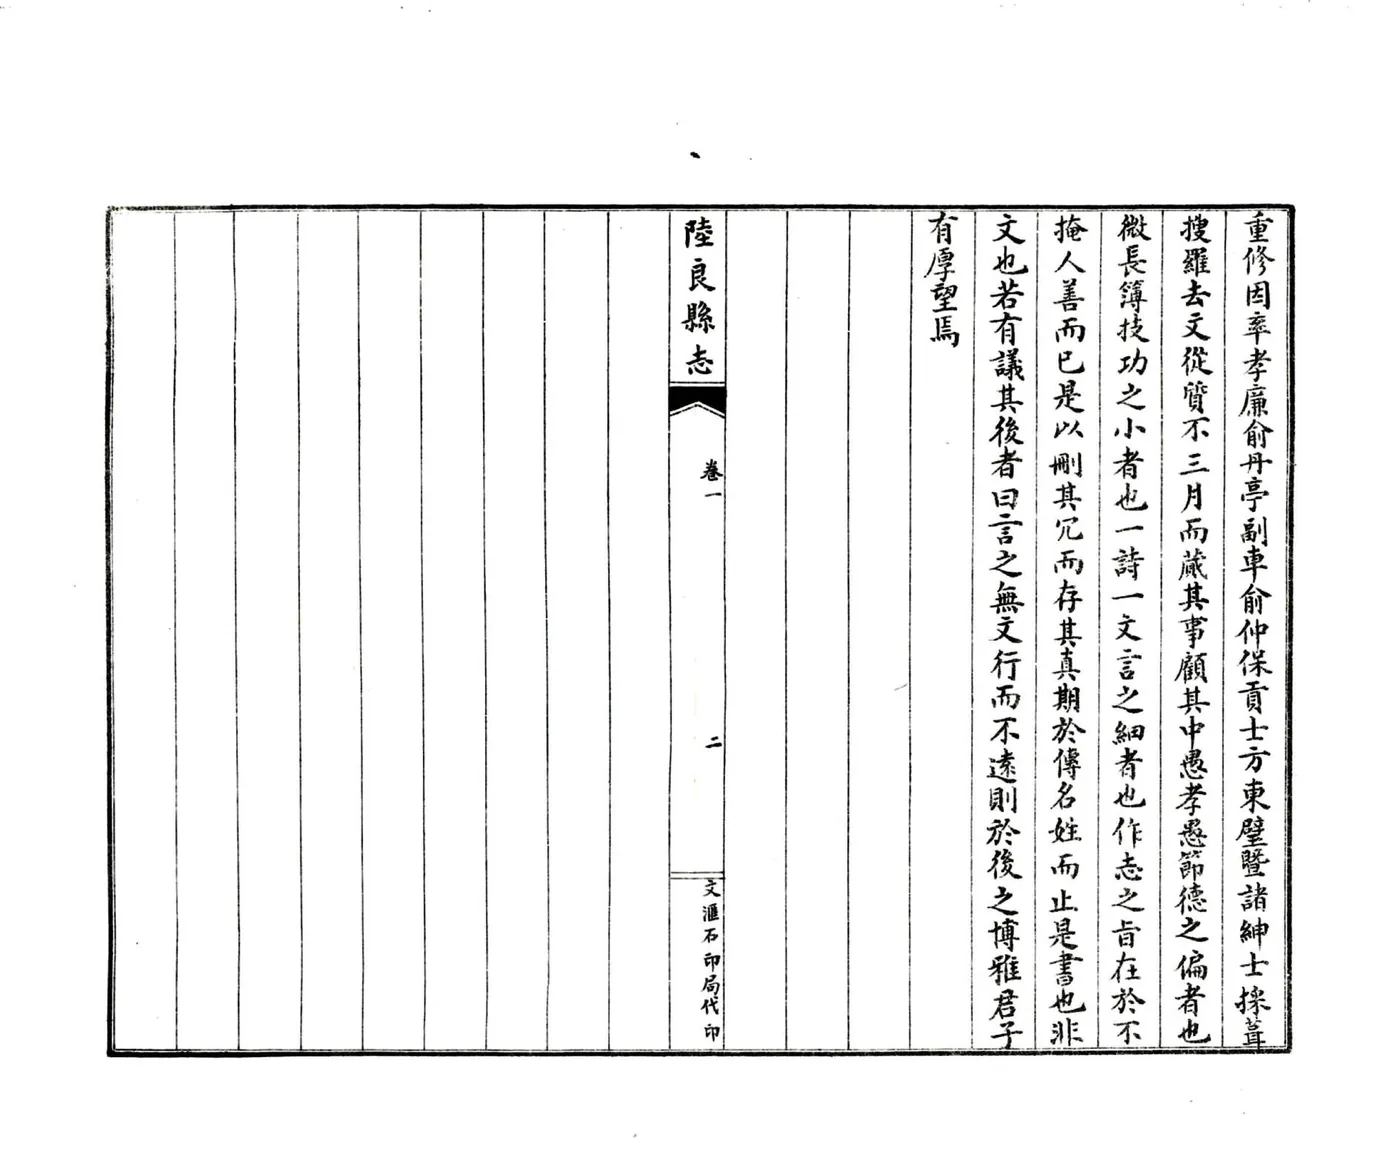 重修因率孝廉俞丹亭副車俞仲保貢士方東璧暨諸紳士採葺
搜羅去文從質不三月而蕆其事顧其中愚孝愚節德之偏者也
微長簿技功之小者也一詩一文言之細者也作志之旨在於不
掩人善而已是以刪其冗而存其真期於傳名姓而止是書也非
文也若有議其後者曰言之無文行而不遠則於後之博雅君子
有厚望焉
陸良縣志
卷一
二
文滙石印局代印